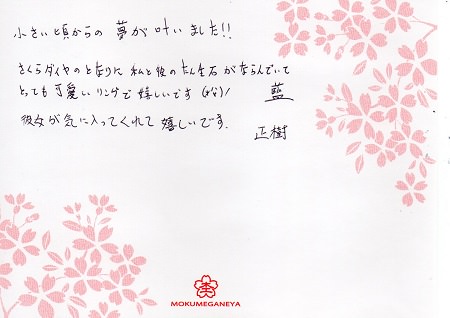 小さい頃からの 夢が叶いました!!
さくらダイヤのとなりに 私と彼のたん生石がならんでいて
とっても可愛いリングで嬉しいです(^^)!
藍
彼女が気に入ってくれて 嬉しいです。
正樹
MOKUMEGANEYA